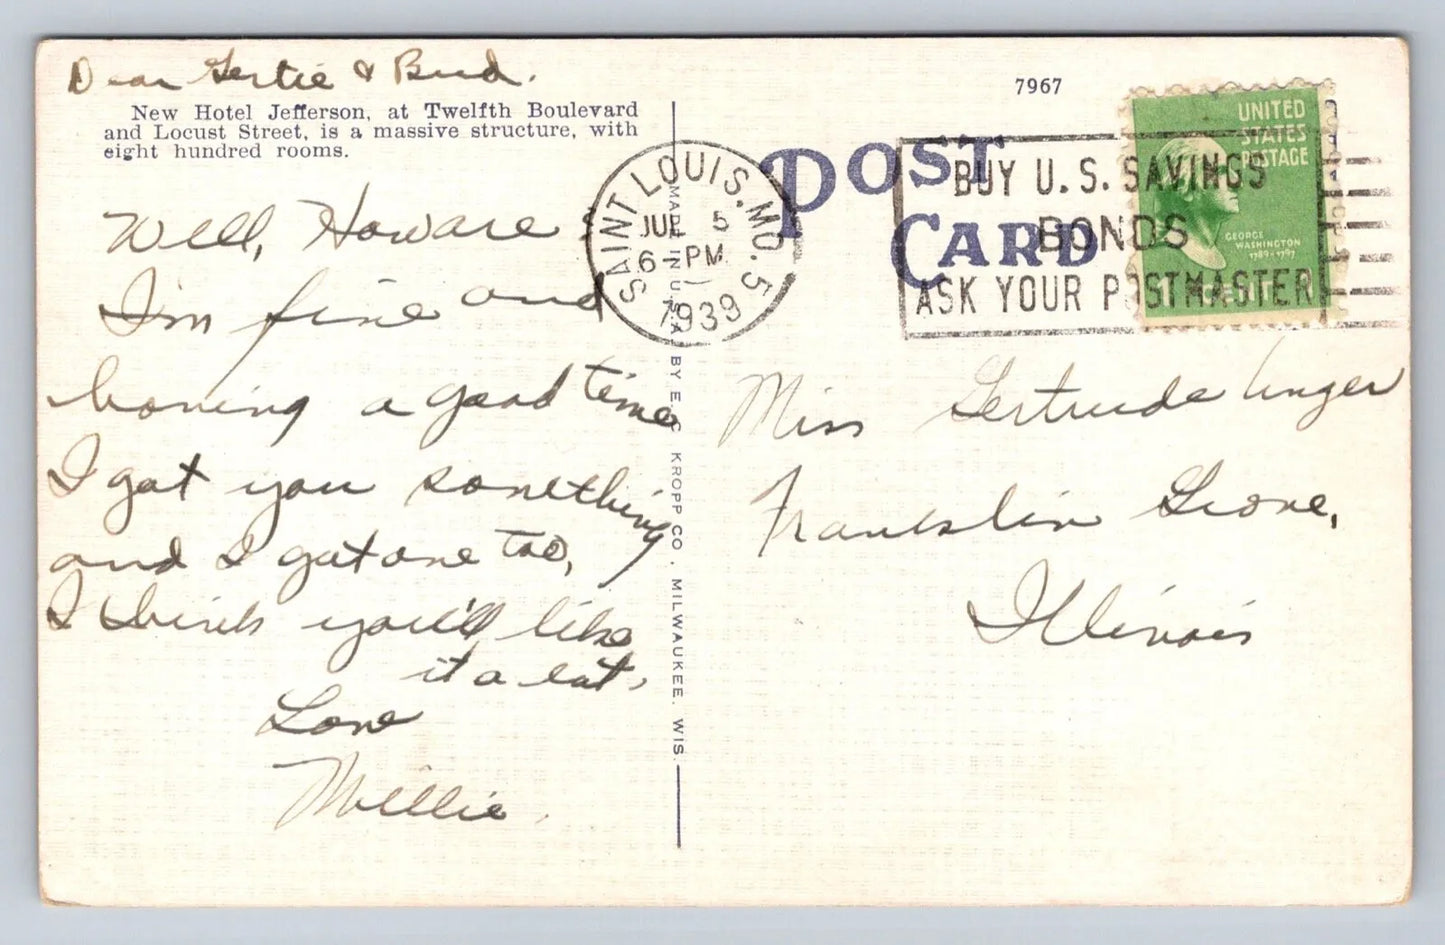 Dear Gertie & Bud.
New Hotel Jefferson, at Twelfth Boulevard
and Locust Street, is a massive structure, with
eight hundred rooms.
Well, Howare
I'm fine and
having a good time
I got you something
and I got one too,
I think you'll like
it a lot,
Love
Millie.
MADE IN U.S.A. BY E. C. KROPP CO., MILWAUKEE, WIS.
7967
POST
CARD
SAINT LOUIS, MO. 5
JUL 5
6-PM
1939
BUY U.S. SAVINGS
BONDS
ASK YOUR POSTMASTER
UNITED
STATES
POSTAGE
GEORGE
WASHINGTON
1789-1797
1 CENT 1
Miss Gertrude Unger
Franklin Grove,
Illinois